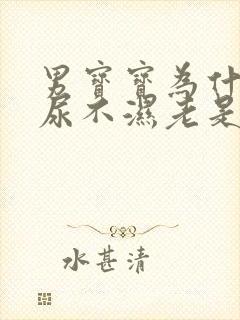 男寶寶為什
尿不濕老是
水甚清